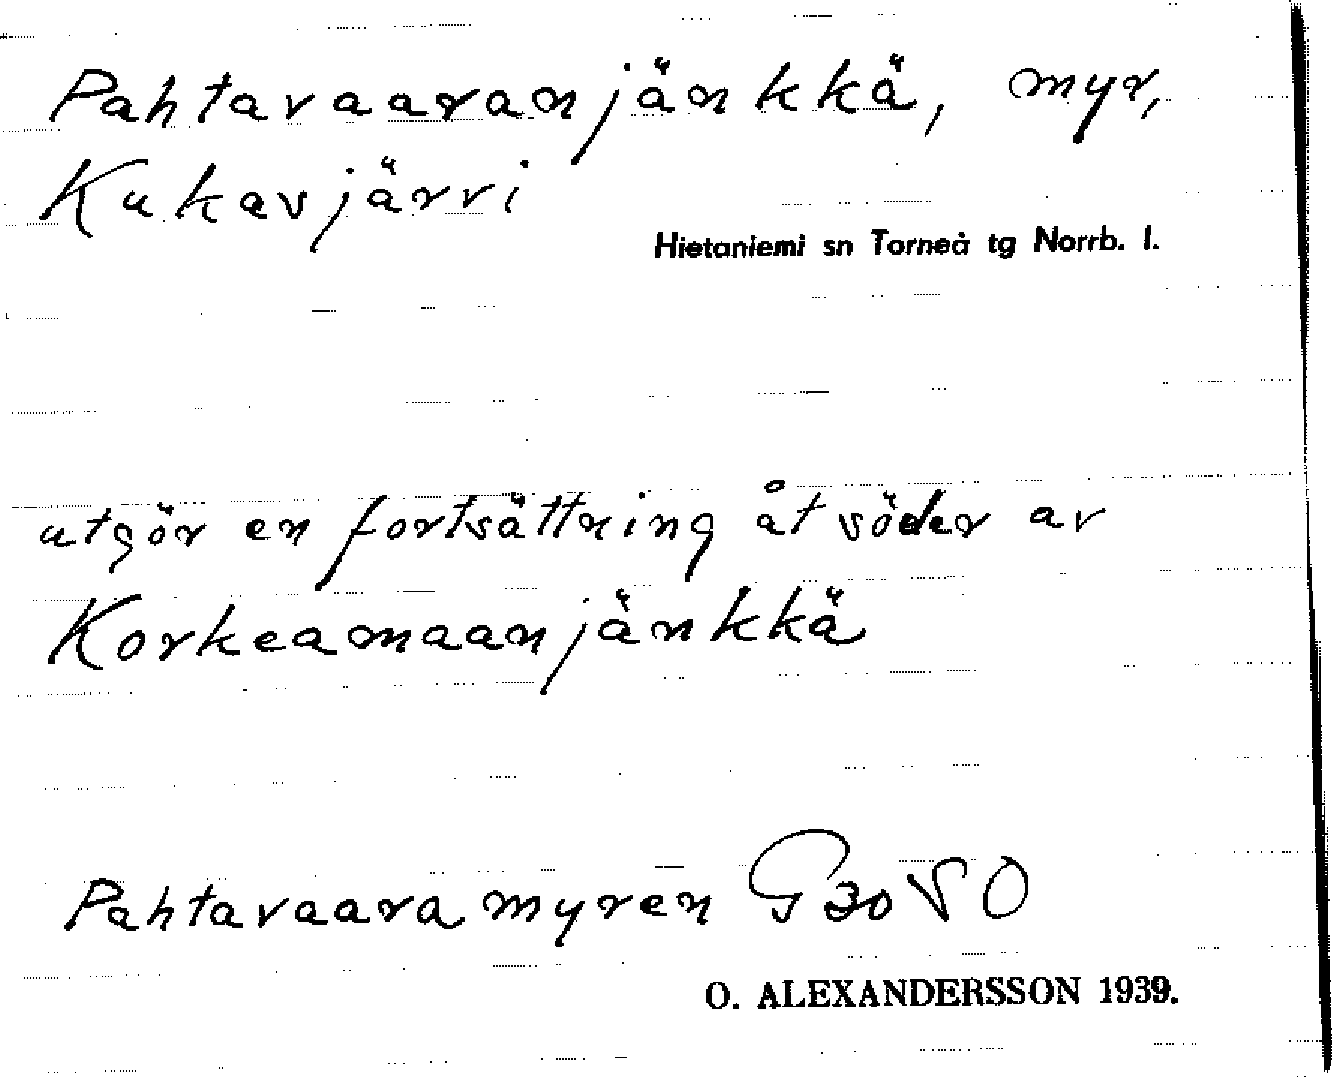 Pahtavaaranjänkkä, myr,
Kukasjärvi
Hietaniemi sn Torneå tg Norrb. l.
utgör en fortsättning åt söder av
Korkeamaanjänkkä
Pahtavaaramyren G 30 SO
O. ALEXANDERSSON 1939.